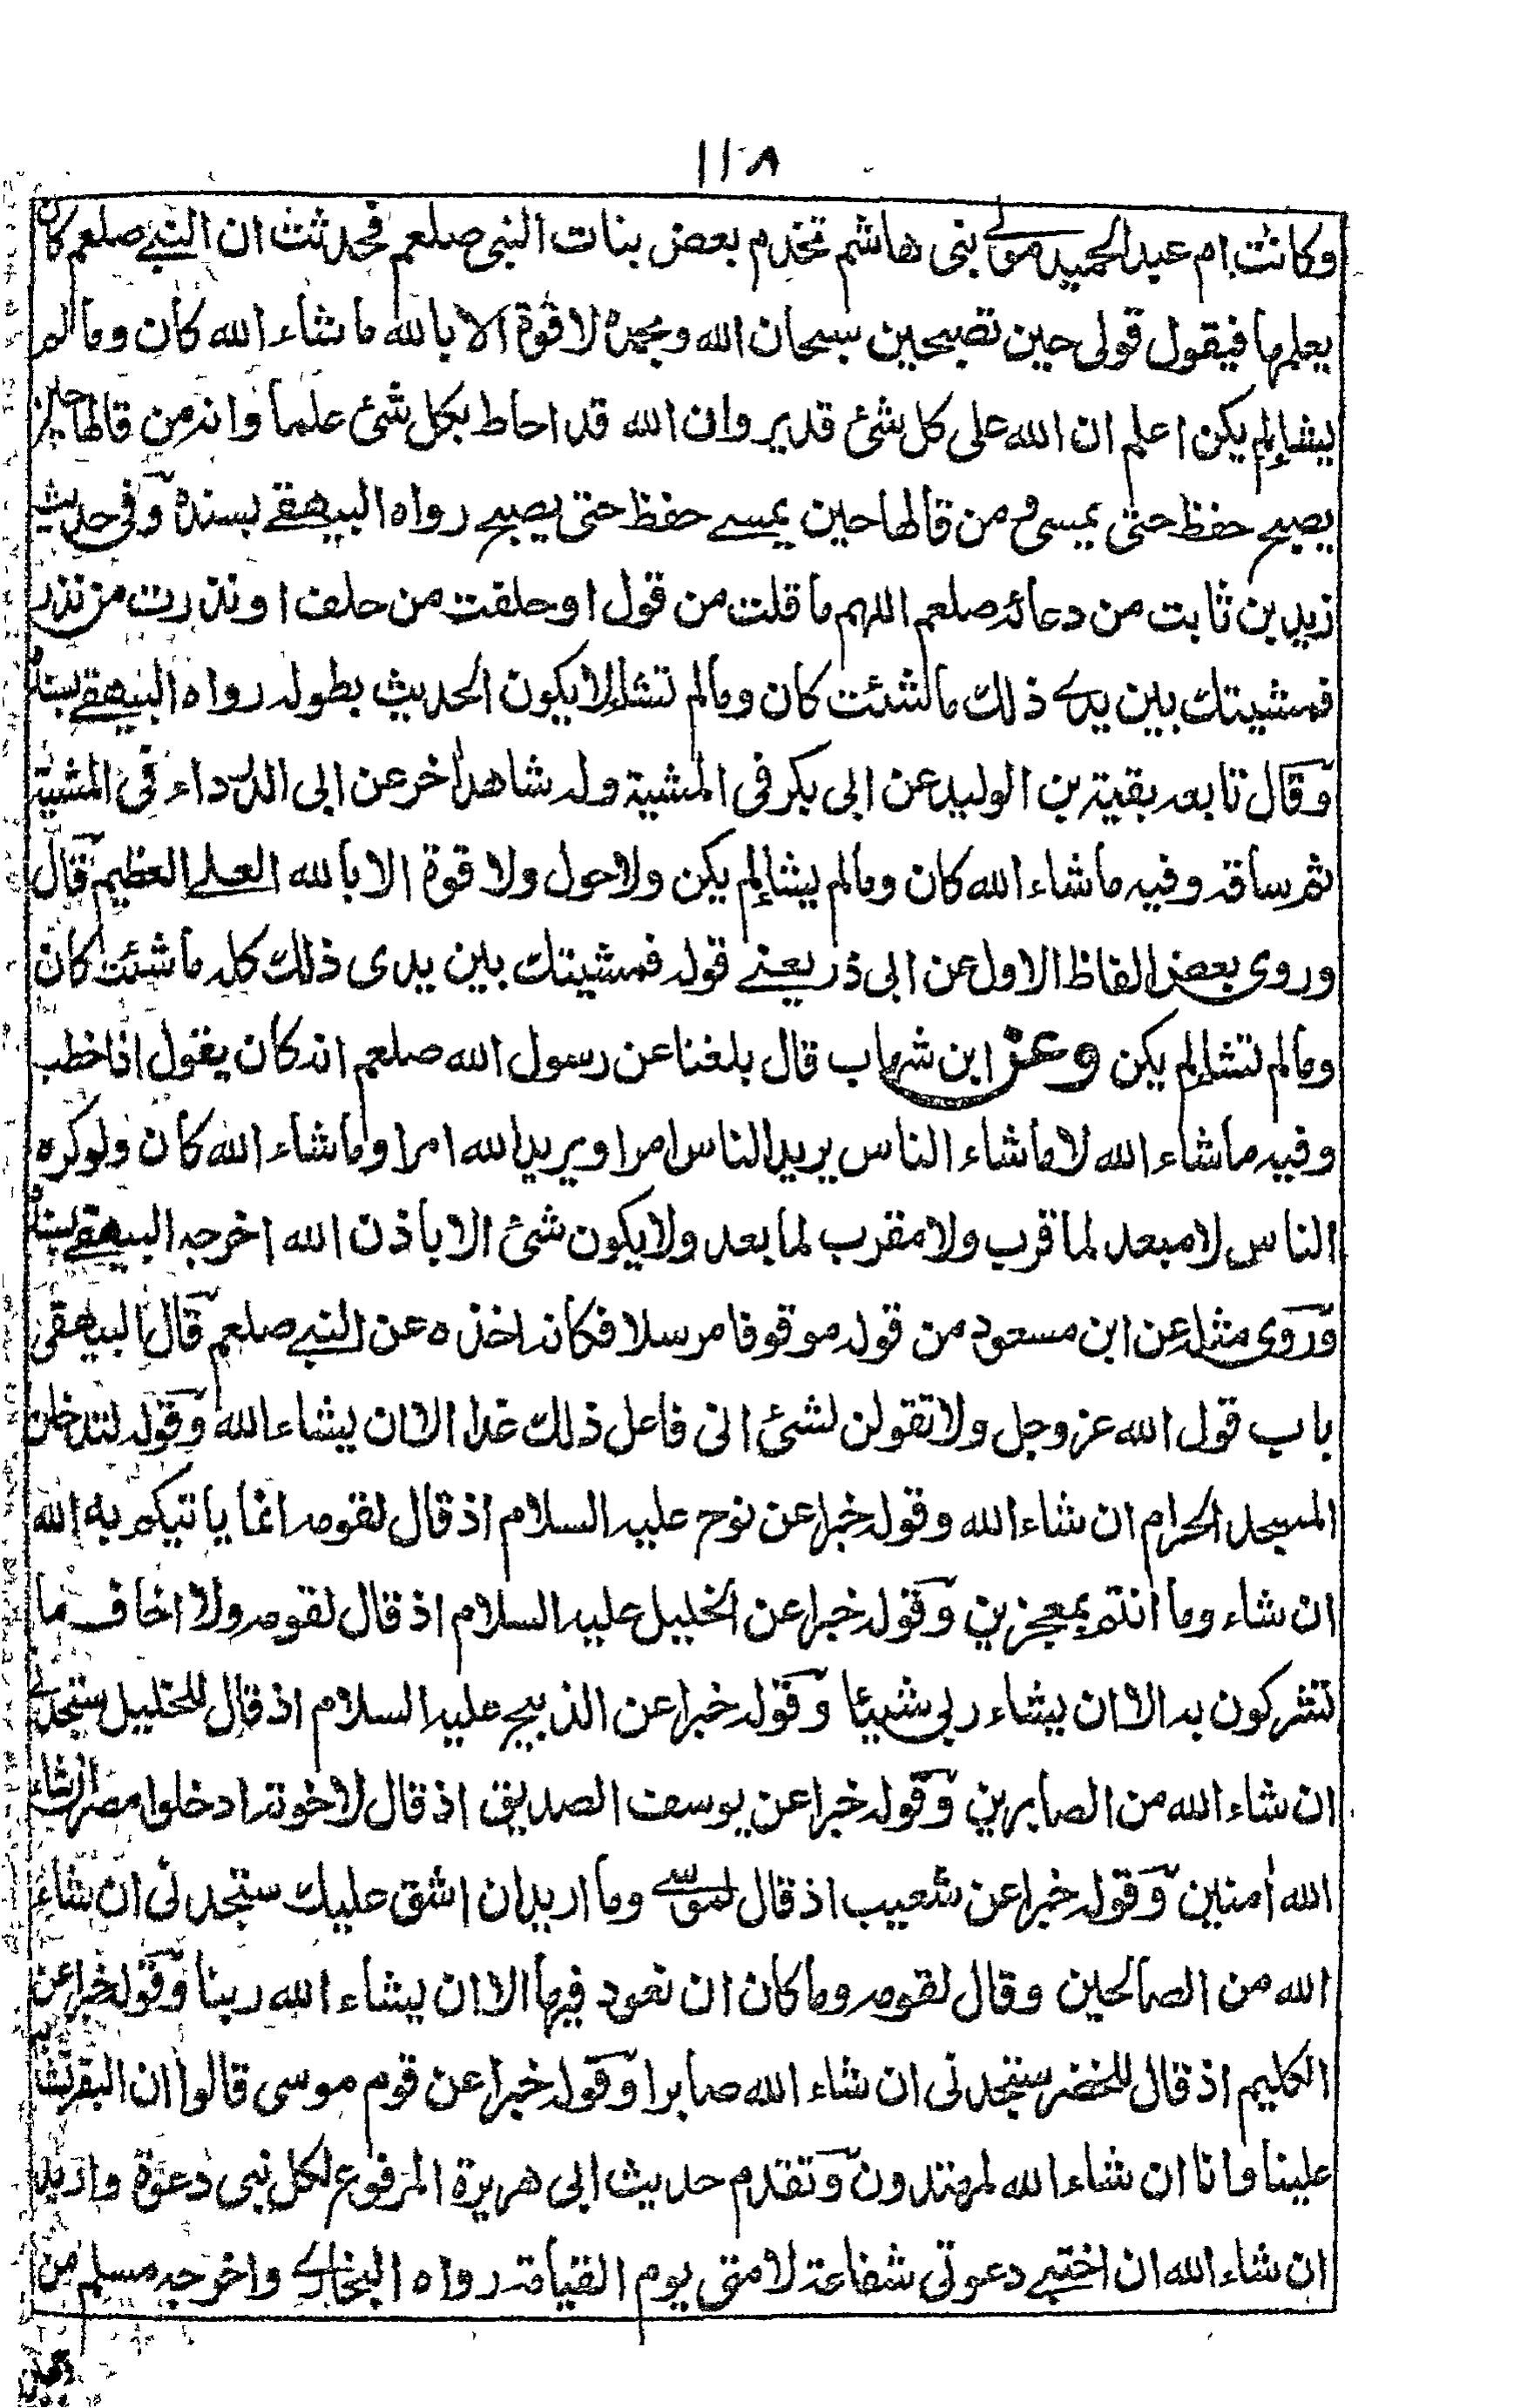 ١١٨
وكانت ام عبد الحميد مولى بنى هاشم تخدم بعض بنات النبى صلعم فحدثت ان النبى صلعم كان
يعلمها فيقول قولى حين تصبحين سبحان الله وبحمده لا قوة الا بالله ما شاء الله كان وما لم
يشا لم يكن اعلم ان الله على كل شئ قدير وان الله قد احاط بكل شئ علما وانه من قالها حين
يصبح حفظ حتى يمسى و من قالها حين يمسى حفظ حتى يصبح رواه البيهقى بسنده وفى حديث
زيد بن ثابت من دعائه صلعم اللهم ما قلت من قول او حلفت من حلف او نذرت من نذر
فمشيتك بين يدى ذلك ما شئت كان وما لم تشا لا يكون الحديث بطوله رواه البيهقى بسنده
وقال تابعه بقية بن الوليد عن ابى بكر فى المشية وله شاهد اخر عن ابى الدرداء فى المشية
ثم ساقه وفيه ما شاء الله كان وما لم يشا لم يكن ولا حول ولا قوة الا بالله العلى العظيم قال
وروى بعض الفاظ الاول عن ابى ذر يعنى قوله فمشيتك بين يدى ذلك كله ما شئت كان
وما لم تشا لم يكن وعن ابن شهاب قال بلغنا عن رسول الله صلعم انه كان يقول اذا خطب
وفيه ما شاء الله لا ما شاء الناس يريد الناس امرا ويريد الله امرا وما شاء الله كان ولو كره
الناس لا مبعد لما قرب ولا مقرب لما بعد ولا يكون شئ الا باذن الله اخرجه البيهقى بسنده
وروى مثله عن ابن مسعود من قوله موقوفا مرسلا فكانه اخذه عن النبى صلعم قال البيهقى
باب قول الله عز وجل ولا تقولن لشئ انى فاعل ذلك غدا الا ان يشاء الله وقوله لتدخلن
المسجد الحرام ان شاء الله وقوله خبرا عن نوح عليه السلام اذ قال لقومه انما ياتيكم به الله
ان شاء وما انتم بمعجزين وقوله خبرا عن الخليل عليه السلام اذ قال لقومه ولا اخاف ما
تشركون به الا ان يشاء ربى شيئا وقوله خبرا عن الذبيح عليه السلام اذ قال للخليل ستجدنى
ان شاء الله من الصابرين وقوله خبرا عن يوسف الصديق اذ قال لاخوته ادخلوا مصر ان شاء
الله امنين وقوله خبرا عن شعيب اذ قال لموسى وما اريد ان اشق عليك ستجدنى ان شاء
الله من الصالحين وقال لقومه وما كان ان نعود فيها الا ان يشاء الله ربنا وقوله خبرا عن
الكليم اذ قال للخضر ستجدنى ان شاء الله صابرا وقوله خبرا عن قوم موسى قالوا ان البقر تشابه
علينا وانا ان شاء الله لمهتدون وتقدم حديث ابى هريرة المرفوع لكل نبى دعوة واريد
ان شاء الله ان اختبى دعوتى شفاعة لامتى يوم القيامة رواه البخارى واخرجه مسلم من